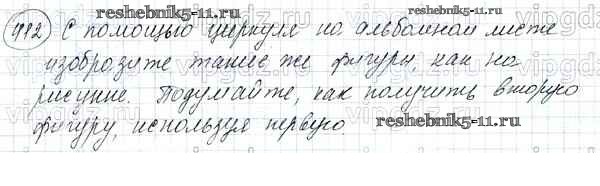 reshebnik5-11.ru
912 С помощью циркуля на альбомном листе
изобразите такие же фигуры, как на
рисунке. Подумайте, как получить вторую
фигуру, используя первую
reshebnik5-11.ru